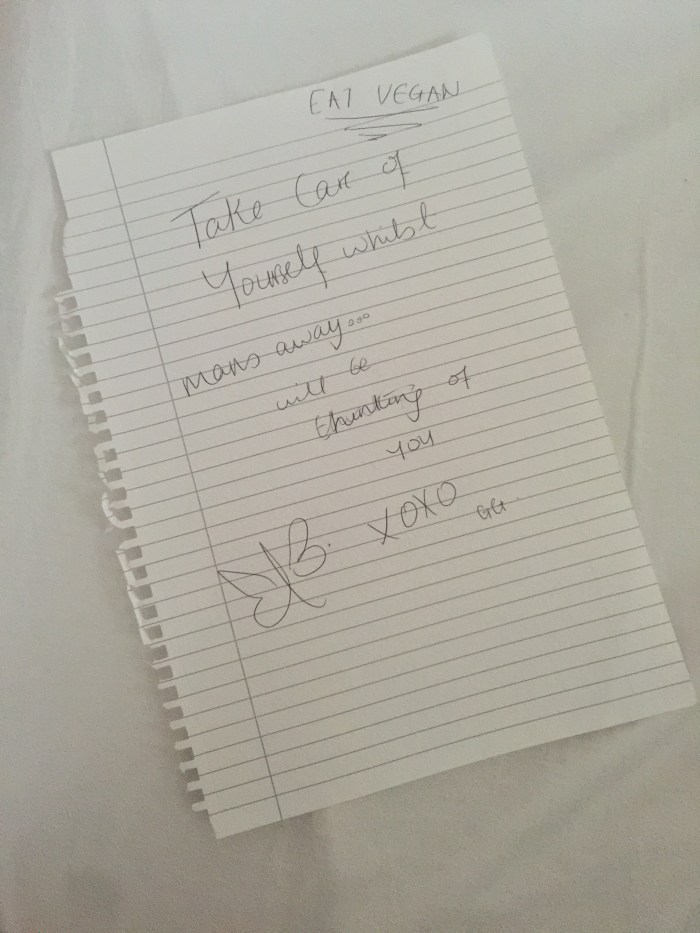 EAT VEGAN
Take Care of
Yourself whilst
mans away...
will be
thinking of
you
B. XOXO GG.